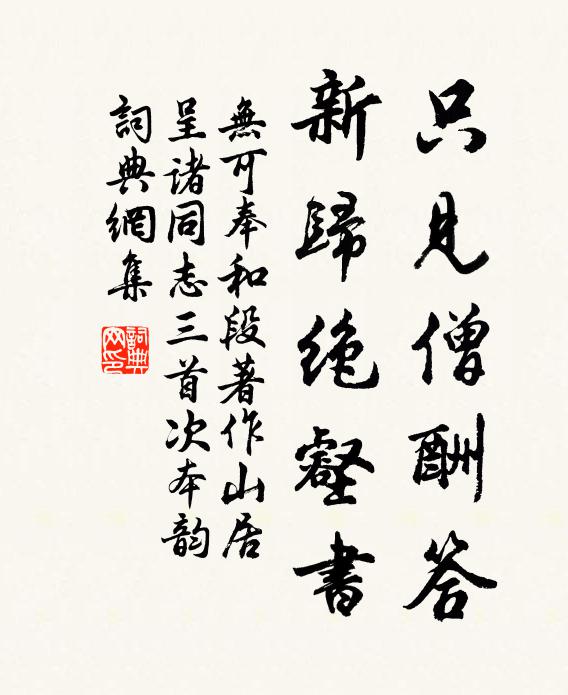 只見僧酬答
新歸絶壑書
無可奉和段著作山居
呈诸同志三首次本韵
詞典網集
詞典
网印